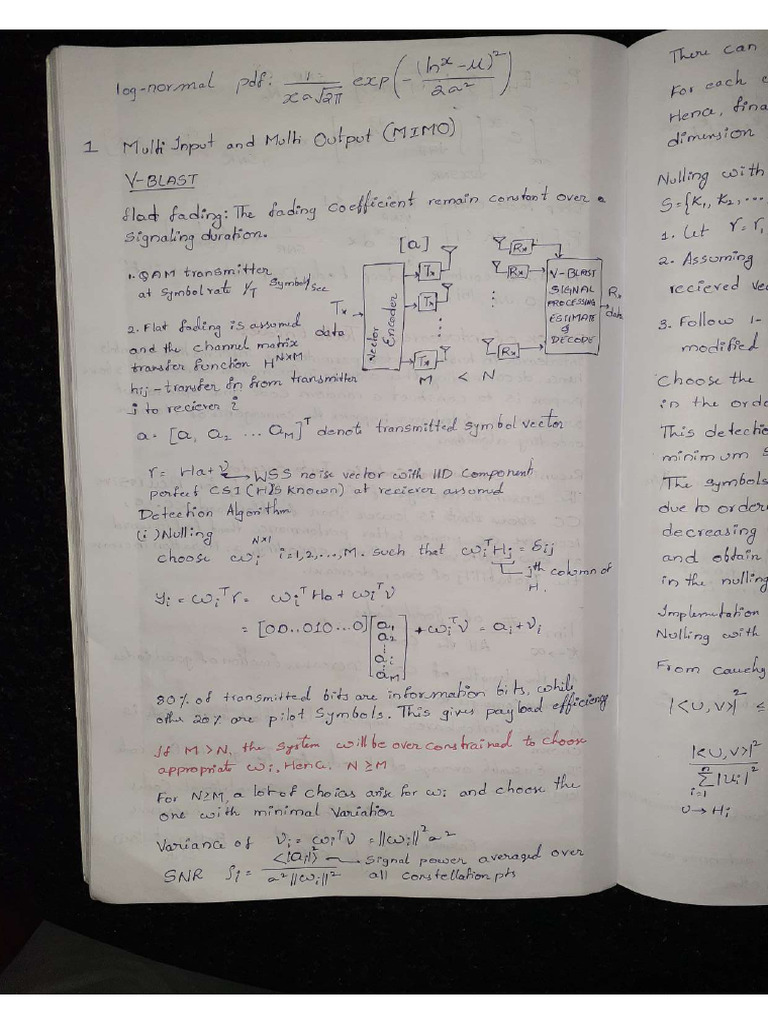 log-normal pdf: 1/(xa√2π) exp(-(ln x - μ)²/2a²)
1 Multi Input and Multi Output (MIMO)
V-BLAST
flat fading: The fading coefficient remain constant over a
signaling duration.
1. QAM transmitter
at symbol rate 1/T symbol/sec
2. Flat fading is assumed
and the channel matrix
transfer function H^N×M
hij - transfer fn from transmitter
j to reciever i
[a]
Tx
data
Vector Encoder
Tx
Tx
Tx
M < N
Rx
Rx
Rx
V-BLAST
SIGNAL
PROCESSING
ESTIMATE
&
DECODE
Rx
data
a = [a, a2 ... aM]^T denote transmitted symbol vector
r = Ha + ν WSS noise vector with IID component
perfect CSI (H is known) at reciever assumed
Detection Algorithm
(i) Nulling
choose ωi^N×1 i=1,2,...,M. such that ωi^T Hj = δij
jth column of
H.
yi = ωi^T r = ωi^T Ha + ωi^T ν
= [00..010...0] [a1 a2 : ai : aM] + ωi^T ν = ai + νi
80% of transmitted bits are information bits, while
other 20% are pilot symbols. This gives payload efficiency
If M > N, the system will be over constrained to choose
appropriate ωi. Hence. N ≥ M
For N ≥ M, a lot of choices arise for ωi and choose the
one with minimal variation
Variance of νi = ωi^T ν = ||ωi||² a²
SNR ρi = <|ai|>²/(a²||ωi||²) Signal power averaged over
all constellation pts
There can
For each
Hence, fina
dimension
Nulling with
S={K1, K2, ...
1. Let r = r1
2. Assuming
recieved vec
3. Follow 1-
modified
Choose the
in the orde
This detectio
minimum S
The symbols
due to order
decreasing
and obtain
in the nulling
Implementation
Nulling with
From cauchy
|<U,V>|² ≤
|<U,V>|²/Σ(i=1 to n)|Ui|²
U → Hi